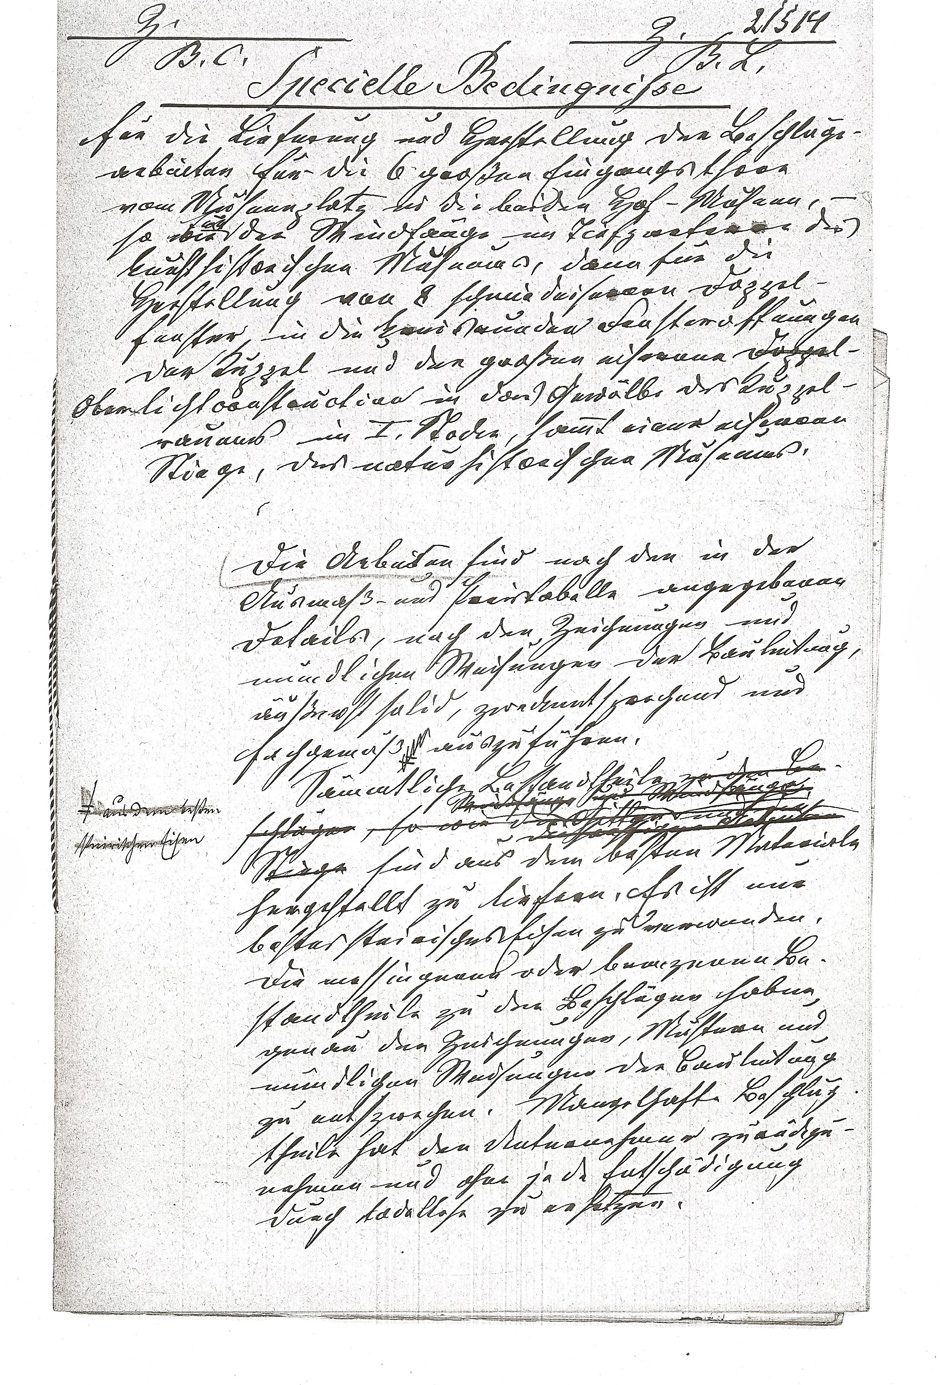 Z. Z. 21514
B. C. B. L.
Specielle Bedingnisse
für die Lieferung und Herstellung der Beschläge-
arbeiten für die 6 großen Eingangsthore
vom Museumsplatz in die beiden Hof-Museen,
so wie der Windfänge im Tiefparterre des
kunsthistorischen Museums, dann für die
Herstellung von 8 schmiedeisernen Doppel-
fenster, in die kreisrunden Fensteröffnungen
der Kuppel und der großen eisernen Doppel-
Oberlichtconstruction in das Gewölbe des Kuppel-
raumes im I. Stocke, sammt einer eisernen
Stiege, des naturhistorischen Museums.
Die Arbeiten sind nach den in der
Ausmaß- und Preistabelle angegebenen
Details, nach den Zeichnungen und
mündlichen Weisungen der Bauleitung,
äußerst solid, zweckentsprechend und
fachgemäß auszuführen.
Sämmtliche Bestandtheile zu den Be-
schlägen, so wie die
Stiege sind aus dem besten Materiale
hergestellt zu liefern. Es ist nur
bestes steirisches Eisen zu verwenden.
Die messingenen oder bronzenen Be-
standtheile zu den Beschlägen haben
genau den Zeichnungen, Mustern und
mündlichen Weisungen der Bauleitung
zu entsprechen. Mangelhafte Beschlag-
theile hat der Unternehmer zurückzu-
nehmen und ohne jede Entschädigung
durch tadellose zu ersetzen.
aus dem besten
steirischen Eisen